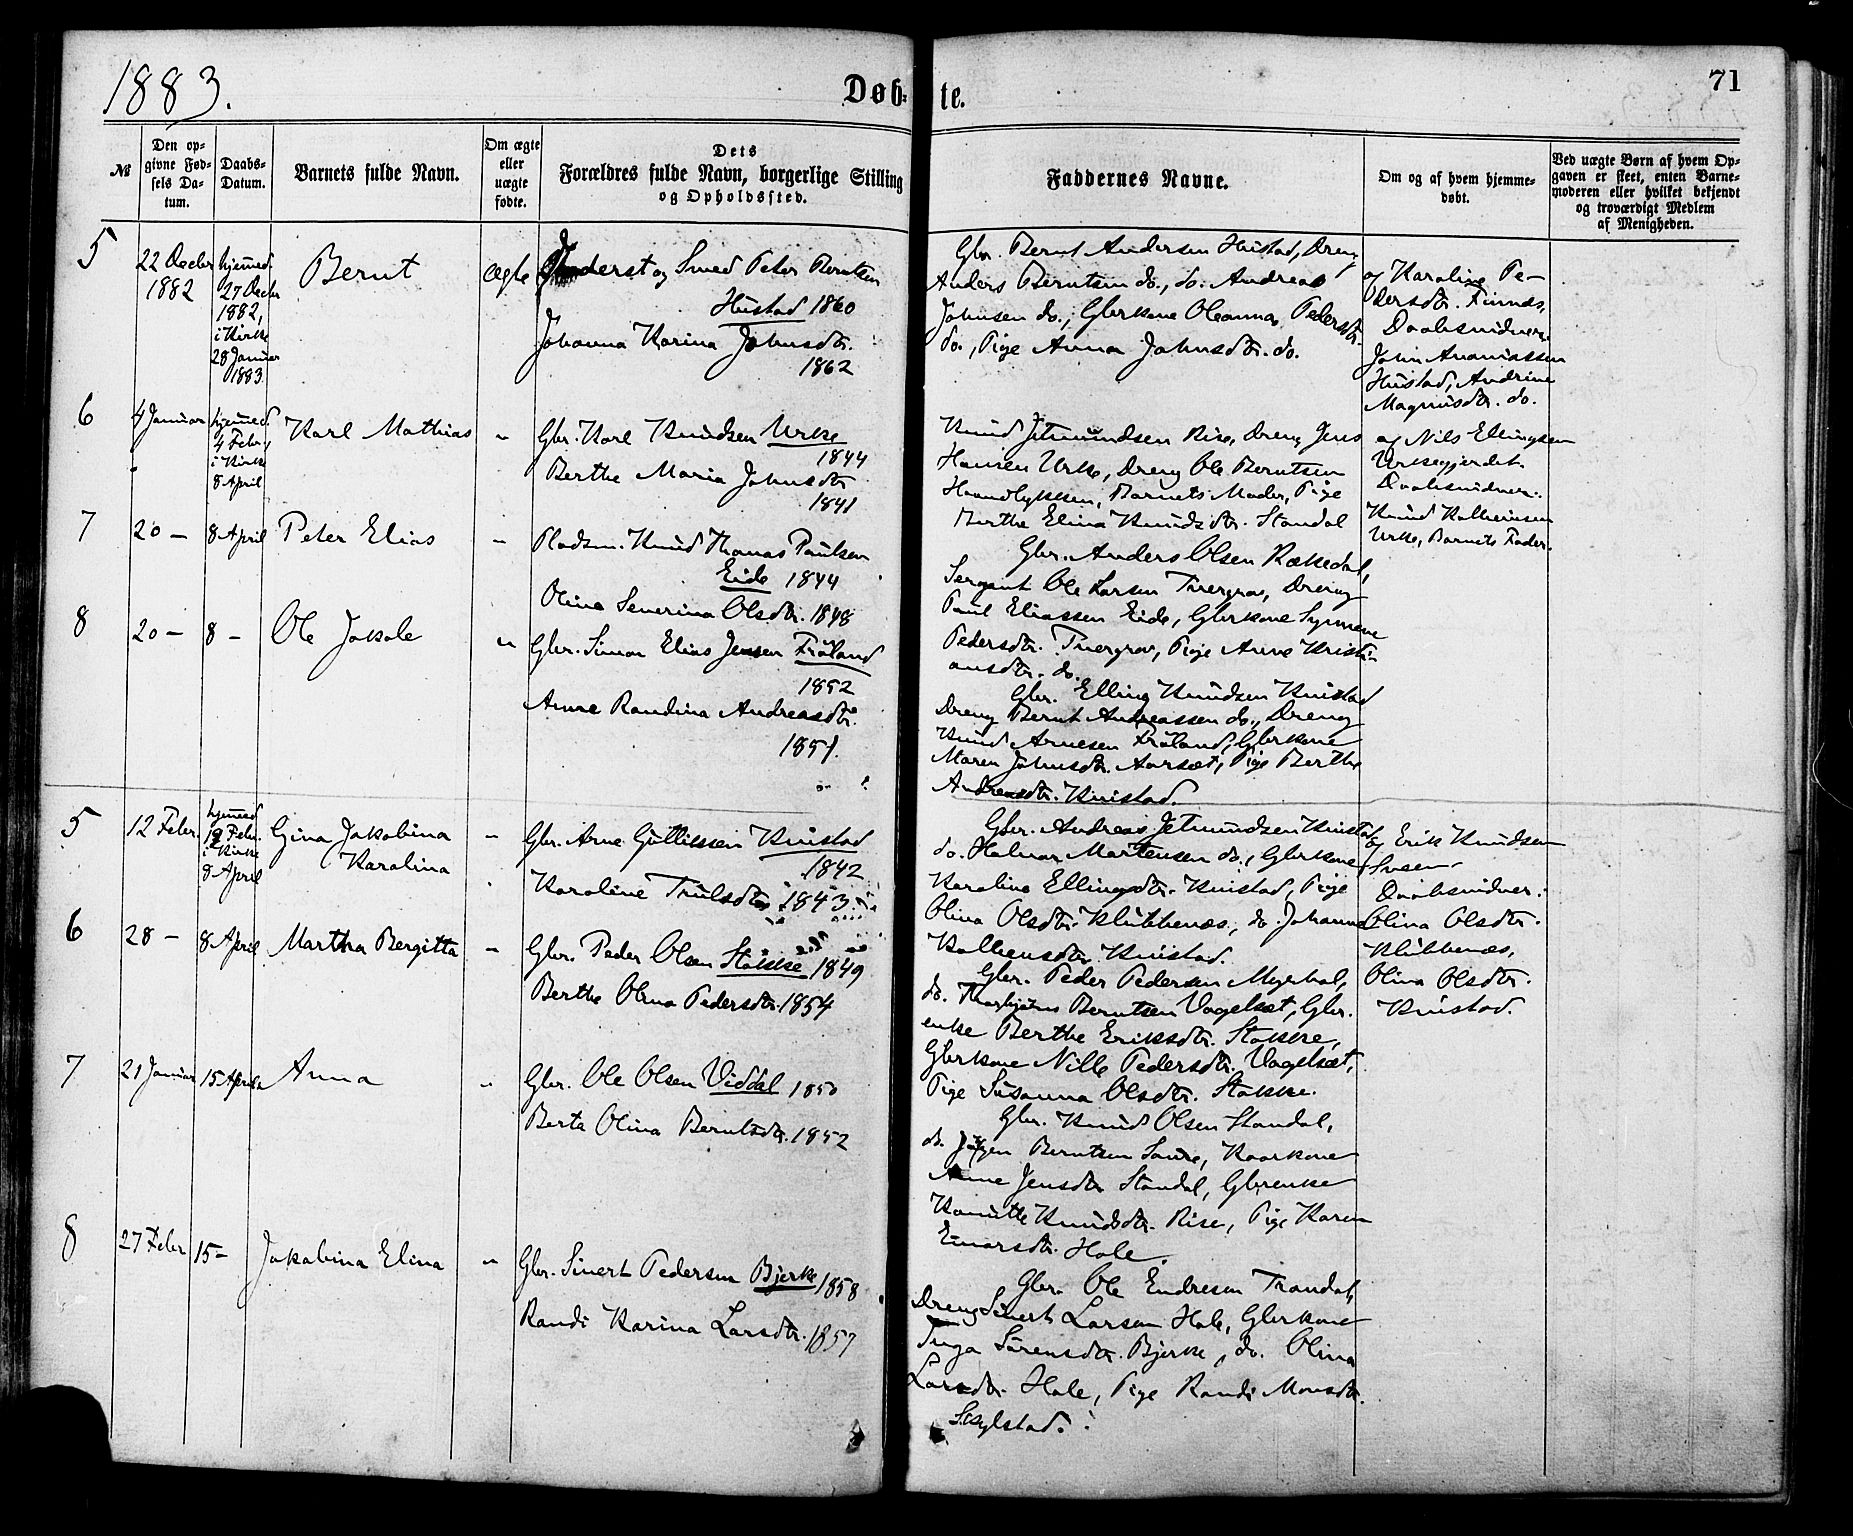 1883.
Døb-
te.
71
№
Den op-
givne Fød-
sels Da-
tum.
Daabs-
Datum.
Barnets fulde Navn.
Om ægte
eller
uægte
fødte.
Dets
Forældres fulde Navn, borgerlige Stilling
og Opholdssted.
Faddernes Navne.
Om og af hvem hjemme-
døbt.
Ved uægte Børn af hvem Op-
gaven er skeet, enten Barne-
moderen eller hvilket bekjendt
og troværdigt Medlem
af Menigheden.
5
22 Decbr
1882
hjemmed.
27 Decbr
1882,
i Kirke
28 Januar
1883.
Bernt
Ægte
Inderst og Smed Peter Berntsen
Hustad 1860
Johanna Karina Johnsdtr.
1862
Gbr. Bernt Andersen Hustad, Dreng
Anders Berntsen do., do. Andreas
Johnsen do., Gbrkone Oleanna Pedersdtr.
do., Pige Anna Johnsdtr. do.
og Karoline Pe-
dersdtr. Finnes,
Daabsvidner:
John Ananiassen
Hustad, Andrine
Magnusdtr. do.
6
4 Januar
hjemmed.
4 Febr.
i Kirke
8 April
Karl Mathias
"
Gbr. Karl Knudsen Urke
1844
Berthe Maria Johnsdtr
1841
Knud Jetmundsen Rise, Dreng Jens
Hansen Urke, Dreng Ole Berntsen
Haandlykken, Barnets Moder, Pige
Berthe Elina Knudsdtr. Standal
og Nils Ellingsen
Urkegjerdet.
Daabsvidner:
Knud
Urke, Barnets Fader.
7
20 —
8 April
Peter Elias
"
Pladsm. Knud Thomas Paulsen
Eide 1844
Oline Severina Olsdtr. 1848
Gbr. Anders Olsen Rækkedal,
Sergeant Ole Larsen Tuergrov, Dreng
Paul Eliassen Eide, Gbrkone Synneve
Pedersdtr. Tuergrov, Pige Anne Kristi-
ansdtr. do.
8
20 —
8 —
Ole Jakob
"
Gbr. Simon Elias Jensen Frøland
1852
Anne Randina Andreasdtr.
1851.
Gbr. Elling Knudsen Knistad
Dreng Bernt Andreassen do., Dreng
Knud Arnesen Frøland, Gbrkone
Maren Johnsdtr. Aarsæt, Pige Berthe
Andreasdtr. Knistad.
5
12 Febr.
hjemmed
19 Febr.
i Kirke
8 April
Gina Jakobina
Karolina
"
Gbr. Arne Guttissen Knistad
1842
Karoline Trulsdtr 1843
Gbr. Andreas Jetmundsen Knistad,
do. Halvar Martensen do., Gbrkone
Karoline Ellingsdtr. Knistad, Pige
Olina Olsdtr. Klubbenæs, do. Johanne
Knistad.
og Erik Knudsen
Daabsvidner:
Olina Olsdtr.
Klubbenæs,
Olina Olsdtr.
Knistad.
6
28 —
8 April
Martha Bergitta
"
Gbr. Peder Olsen Stokke 1849
Berthe Olina Pedersdtr. 1854
Gbr. Peder Pedersen Myrhol,
do. Thorbjørn Berntsen Vagelsæt, Gbr.
enke Berthe Eriksdtr. Stokke,
Gbrkone Nille Pedersdtr. Vagelsæt,
Pige Susanna Olsdtr. Stokke.
7
21 Januar
15 April
Anna
"
Gbr. Ole Olsen Viddal 1850
Berta Olina Berntsdtr. 1852
Gbr. Knud Olsen Standal,
do. Jørgen Berntsen Saure, Kaarkone
Anne Jensdtr Standal, Gbrenke
Knudsdtr. Rise, Pige Karen
Einarsdtr. Hole.
8
27 Febr
15 —
Jakobina Elina
"
Gbr. Sivert Pedersen Bjerke 1858
Randi Karina Larsdtr. 1857
Gbr. Ole Endresen Trandal,
Dreng Sivert Larsen Hole, Gbrkone
Inga Sørensdtr. Bjerke, do. Olina
Larsdtr. Hole, Pige Randi Monsdtr.
Skylstad.